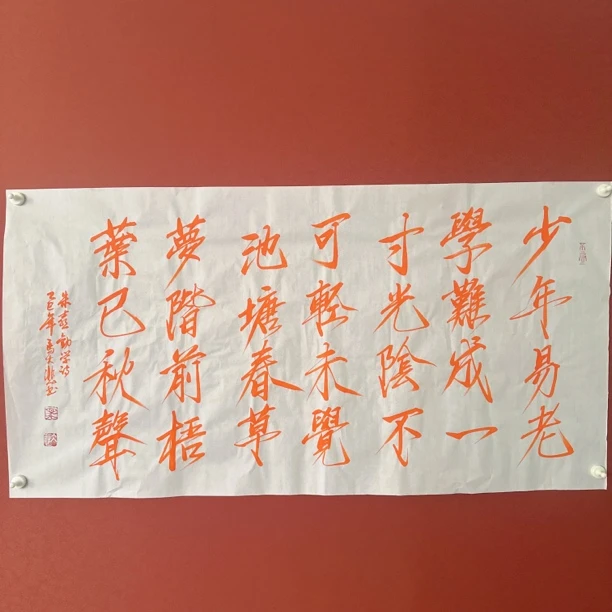 少年易老
學難成一
寸光陰不
可輕未覺
池塘春草
夢階前梧
葉已秋聲
朱熹勸学詩
乙巳年